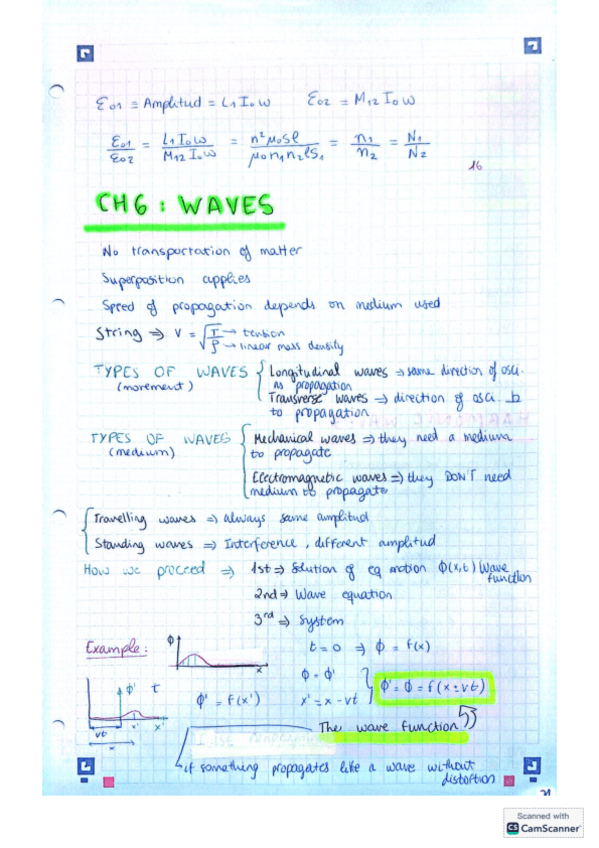 ε01 ≡ Amplitud = L1 I0 ω    ε02 = M12 I0 ω
ε01/ε02 = L1 I0 ω / M12 I0 ω = n² μ0 S l / μ0 n1 n2 l S1 = n1/n2 = N1/N2
16
CH6: WAVES
No transportation of matter
Superposition applies
Speed of propagation depends on medium used
String ⇒ v = √(T/ρ) → tension
→ linear mass density
TYPES OF WAVES (movement) { Longitudinal waves ⇒ same direction of osci.
as propagation
Transverse waves ⇒ direction of osci. ⊥
to propagation
TYPES OF WAVES (medium) { Mechanical waves ⇒ they need a medium
to propagate
Electromagnetic waves ⇒ they DON'T need
medium to propagate
Travelling waves ⇒ always same amplitud
Standing waves ⇒ Interference, different amplitud
How we proceed ⇒ 1st ⇒ Solution of eq motion Φ(x,t) Wave
function
2nd ⇒ Wave equation
3rd ⇒ System
Example: Φ x    t = 0 ⇒ Φ = f(x)
Φ' t x' x' vt x
Φ' = f(x')    Φ = Φ'    x' = x - vt } Φ' = Φ = f(x ± vt)
The wave function
if something propagates like a wave without
distortion
Scanned with
CS CamScanner